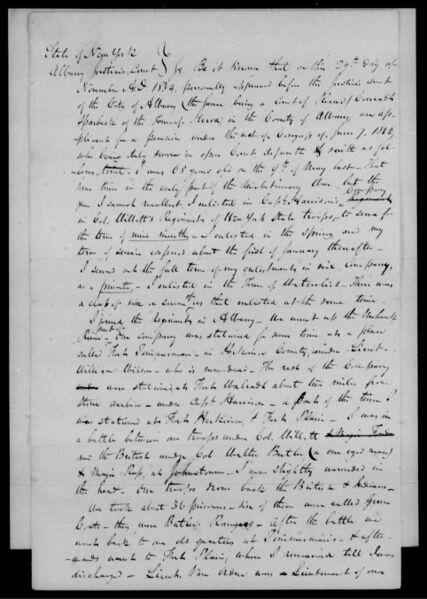 State of New York
Albany Justices Court } ss Be it known that on this 29th day of
November A.D. 1834, personally appeared before the Justices Court
of the City of Albany (the same being a Court of Record)
of the Town of in the County of Albany, an ap-
plicant for a pension under the act of Congress of June 7, 1832,
who being duly sworn in open Court deposeth & saith as fol-
lows, I was 68 years old on the 9th of May last - That
some time in the early part of the Revolutionary War but the
I cannot recollect, I enlisted in Capt. Harrison's Company
in Col. Willett's Regiment of New York State troops, to serve for
the term of nine months - I enlisted in the Spring, and my
term of service expired about the first of January thereafter -
I served out the full term of my enlistment in said Company,
as a private, - I enlisted in the Town of - There was
a class of six or seven that enlisted at the same time -
I joined the Regiment in Albany - We went up the Mohawk
River - part of Our Company was stationed for some time at a place
called Fort in Herkimer County, under Lieut.
William Wilson - who is now dead - The rest of the Company
were stationed at Fort about two miles from
Stone Arabia - under Capt. Harrison - a part of the time I
was stationed at Fort Herkimer, & Fort Plain - I was in
a battle between our troops under Col. Willett
and the British under Col. Walter Butler (a one eyed man)
& Major Ross, at Johnstown - I was slightly wounded in
the hand - Our troops drove back the British & Indians -
We took about 36 prisoners - some of them were called Green
Coats - they were Butler's Rangers - After the battle we
went back to our old quarters at & after-
wards went to Fort Plain, where I remained till I was
discharged - Lieut. Van was a Lieutenant of our